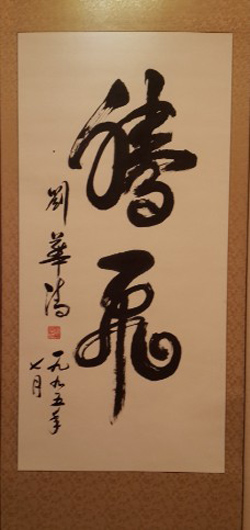 腾飞
劉華清
一九九五年
七月